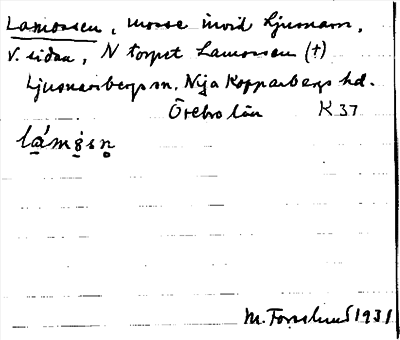 Lamossen, mosse invid Ljusnaren,
v. sidan, N torpet Lamossen (†)
Ljusnarsbergs sn, Nya Kopparbergs hd.
Örebro län K 37
M. Forslund 1931